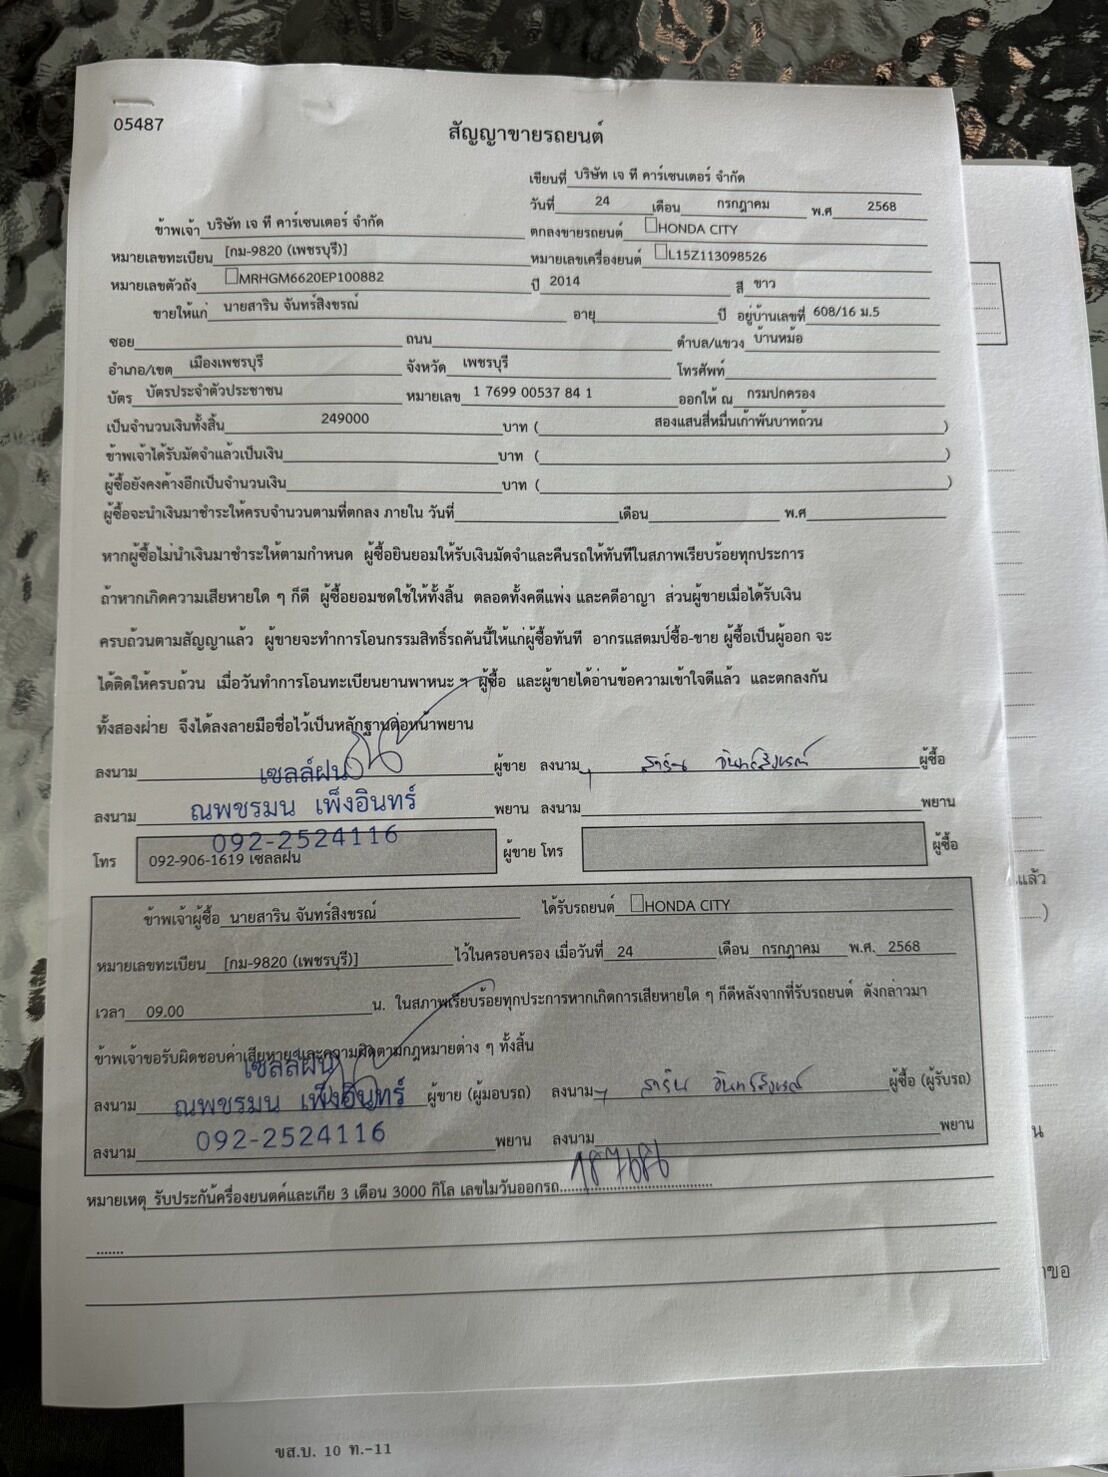 05487
สัญญาขายรถยนต์
เขียนที่ บริษัท เจ ที คาร์เซนเตอร์ จำกัด
วันที่ 24 เดือน กรกฎาคม พ.ศ 2568
ข้าพเจ้า บริษัท เจ ที คาร์เซนเตอร์ จำกัด ตกลงขายรถยนต์ HONDA CITY
หมายเลขทะเบียน [กม-9820 (เพชรบุรี)] หมายเลขเครื่องยนต์ L15Z113098526
หมายเลขตัวถัง MRHGM6620EP100882 ปี 2014 สี ขาว
ขายให้แก่ นายสาริน จันทร์สิงขรณ์ อายุ ปี อยู่บ้านเลขที่ 608/16 ม.5
ซอย ถนน ตำบล/แขวง บ้านหม้อ
อำเภอ/เขต เมืองเพชรบุรี จังหวัด เพชรบุรี โทรศัพท์
บัตร บัตรประจำตัวประชาชน หมายเลข 1 7699 00537 84 1 ออกให้ ณ กรมปกครอง
เป็นจำนวนเงินทั้งสิ้น 249000 บาท ( สองแสนสี่หมื่นเก้าพันบาทถ้วน )
ข้าพเจ้าได้รับมัดจำแล้วเป็นเงิน บาท ( )
ผู้ซื้อยังคงค้างอีกเป็นจำนวนเงิน บาท ( )
ผู้ซื้อจะนำเงินมาชำระให้ครบจำนวนตามที่ตกลง ภายใน วันที่ เดือน พ.ศ
หากผู้ซื้อไม่นำเงินมาชำระให้ตามกำหนด ผู้ซื้อยินยอมให้รับเงินมัดจำและคืนรถให้ทันทีในสภาพเรียบร้อยทุกประการ
ถ้าหากเกิดความเสียหายใด ๆ ก็ดี ผู้ซื้อยอมชดใช้ให้ทั้งสิ้น ตลอดทั้งคดีแพ่ง และคดีอาญา ส่วนผู้ขายเมื่อได้รับเงิน
ครบถ้วนตามสัญญาแล้ว ผู้ขายจะทำการโอนกรรมสิทธิ์รถคันนี้ให้แก่ผู้ซื้อทันที อากรแสตมป์ซื้อ-ขาย ผู้ซื้อเป็นผู้ออก จะ
ได้ติดให้ครบถ้วน เมื่อวันทำการโอนทะเบียนยานพาหนะ ฯ ผู้ซื้อ และผู้ขายได้อ่านข้อความเข้าใจดีแล้ว และตกลงกัน
ทั้งสองฝ่าย จึงได้ลงลายมือชื่อไว้เป็นหลักฐานต่อหน้าพยาน
ลงนาม เซลล์ฝน ผู้ขาย ลงนาม สาริน จันทร์สิงขรณ์ ผู้ซื้อ
ลงนาม ณพชรมน เพ็งอินทร์ พยาน ลงนาม พยาน
092-2524116
โทร 092-906-1619 เซลล์ฝน ผู้ขาย โทร ผู้ซื้อ
ข้าพเจ้าผู้ซื้อ นายสาริน จันทร์สิงขรณ์ ได้รับรถยนต์ HONDA CITY
หมายเลขทะเบียน [กม-9820 (เพชรบุรี)] ไว้ในครอบครอง เมื่อวันที่ 24 เดือน กรกฎาคม พ.ศ. 2568
เวลา 09.00 น. ในสภาพเรียบร้อยทุกประการหากเกิดการเสียหายใด ๆ ก็ดีหลังจากที่รับรถยนต์ ดังกล่าวมา
ข้าพเจ้าขอรับผิดชอบค่าเสียหาย และความผิดตามกฎหมายต่าง ๆ ทั้งสิ้น
เซลล์ฝน
ลงนาม ณพชรมน เพ็งอินทร์ ผู้ขาย (ผู้มอบรถ) ลงนาม สาริน จันทร์สิงขรณ์ ผู้ซื้อ (ผู้รับรถ)
ลงนาม 092-2524116 พยาน ลงนาม พยาน
หมายเหตุ รับประกันครื่องยนตค์และเกีย 3 เดือน 3000 กิโล เลขไมวันออกรถ 187686
.......
แล้ว
)
น
าขอ
ขส.บ. 10 ท.-11